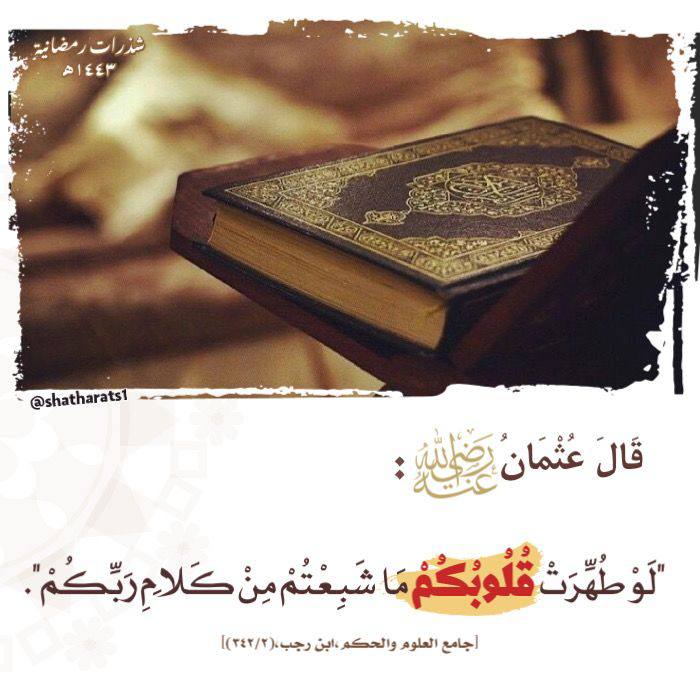 شذرات رمضانية
١٤٤٣هـ
القرآن الكريم
@shatharats1
قَالَ عُثْمَانُ رَضِيَ اللَّهُ عَنْهُ :
"لَوْ طُهِّرَتْ قُلُوبُكُمْ مَا شَبِعْتُمْ مِنْ كَلَامِ رَبِّكُمْ".
[جامع العلوم والحكم،ابن رجب،(٣٤٢/٢)]